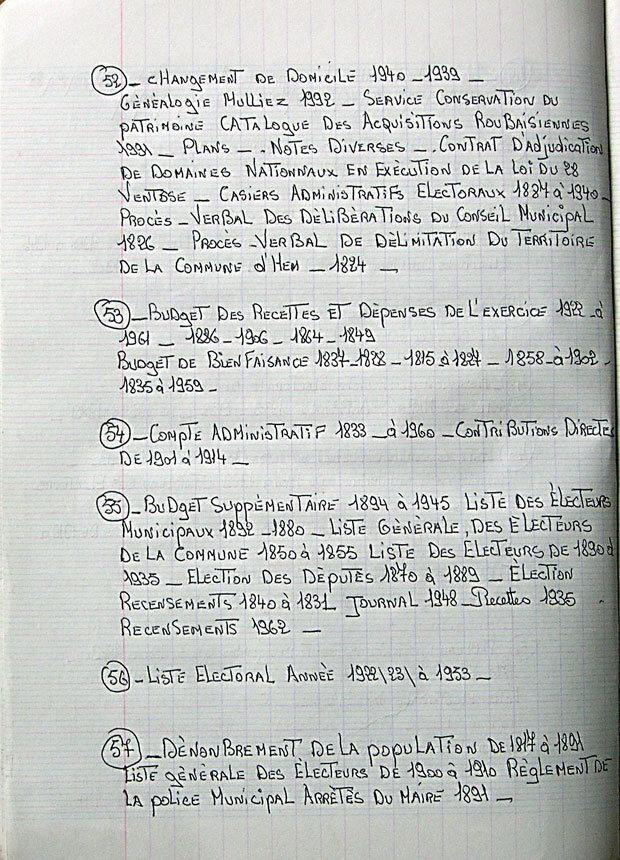 52 - CHANGEMENT DE DOMICILE 1940 - 1939 -
GÈNÈALOGIE MULLIEZ 1992 - SERVICE CONSERVATION DU
PATRIMOINE CATALOGUE DES ACQUISITIONS ROUBAISIENNES
1991 - PLANS - . NOTES DIVERSES - . CONTRAT D'ADJUDICATION
DE DOMAINES NATIONNAUX EN EXÈCUTION DE LA LOI DU 28
VENTOSE - CASIERS ADMINISTRATIFS ELECTORAUX 1884 à 1940 -
PROCÈS - VERBAL DES DÈLIBÈRATIONS DU CONSEIL MUNICIPAL
1826 - PROCÈS - VERBAL DE DÈLIMITATION DU TERRITOIRE
DE LA COMMUNE d'HEM - 1824 -
53 - BUDGET DES RECETTES ET DÈPENSES DE L'EXERCICE 1922 - à
1961 - 1896 - 1906 - 1864 - 1849
BUDGET DE BIENFAISANCE 1837 - 1828 - 1815 à 1827 - 1858 - à 1902 -
1835 à 1959 -
54 - COMPTE ADMINISTRATIF 1833 - à 1960 - CONTRIBUTIONS DIRECTES
DE 1901 à 1914 -
55 - BUDGET SUPPÈMENTAIRE 1894 à 1945 LISTE DES ÈLECTEURS
MUNICIPAUX 1892 - 1880 - LISTE GÈNÈRALE, DES ÈLECTEURS
DE LA COMMUNE 1850 à 1855 LISTE DES ÈLECTEURS DE 1890 à
1935 - ELECTION DES DÈPUTÈS 1870 à 1889 - ÈLECTION
RECENSEMENTS 1840 à 1831 JOURNAL 1948 - Recettes 1935 -
RECENSEMENTS 1962 -
56 - LISTE ELECTORAL ANNÈE 1922\23\ à 1953 -
57 - DÈNONBREMENT DE LA POPULATION DE 1817 à 1891
LISTE GÈNÈRALE DES ÈLECTEURS DE 1900 à 1910 RÈGLEMENT DE
LA POLICE MUNICIPAL ARRÈTÈS DU MAIRE 1891 -